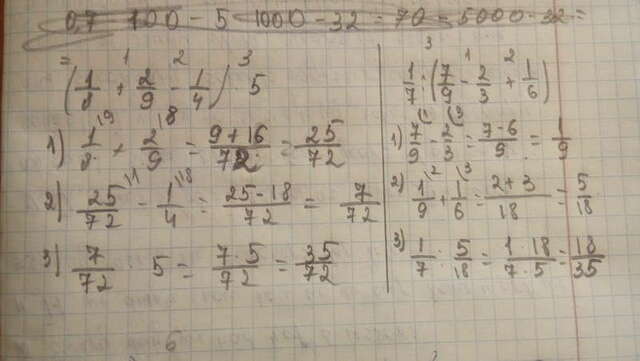 0,7 · 100 - 5 · 1000 - 32 = 70 - 5000 - 32 =
= 1 2 3
(1/8 + 2/9 - 1/4) · 5
1) 1/8 \9 + 2/9 \8 = 9+16/72 = 25/72
2) 25/72 \1 - 1/4 \18 = 25-18/72 = 7/72
3) 7/72 · 5 = 7·5/72 = 35/72
3 1 2
1/7 : (7/9 - 2/3 + 1/6)
1) 7/9 \1 - 2/3 \3 = 7-6/9 = 1/9
2) 1/9 \2 + 1/6 \3 = 2+3/18 = 5/18
3) 1/7 : 5/18 = 1·18/7·5 = 18/35
6